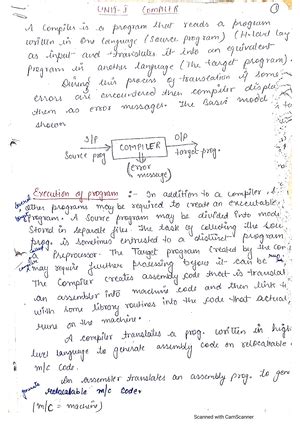 UNIT-I COMPILER
1
A Compiler is a program that reads a program
written in one language (Source program) (H.level lag
as input and translates it into an equivalent
program in another language (The target program).
During this process of translation if some
errors are encountered then compiler displa
them as error messages. The Basic model
shown
I/P
O/P
COMPILER
Source prog
target prog.
(error
message)
Execution of program :- In addition to a compiler
other programs may be required to create an executable
program. A source program may be divided into mod
stored in separate file. The task of collecting the sou
prog. is sometimes entrusted to a distinct program
a Preprocessor. The Target program created by the com
may require further processing before it can be
The Compiler creates assembly code that is translat
an assembler into machine code and then link t
with some library routines into the code that actual
runs on the machine.
A compiler translates a prog. written in high
level language to generate assembly code or relocatable
m/c code.
An assembler translates an assembly prog. to gen
relocatable m/c code.
(m/c = machine)
Scanned with CamScanner